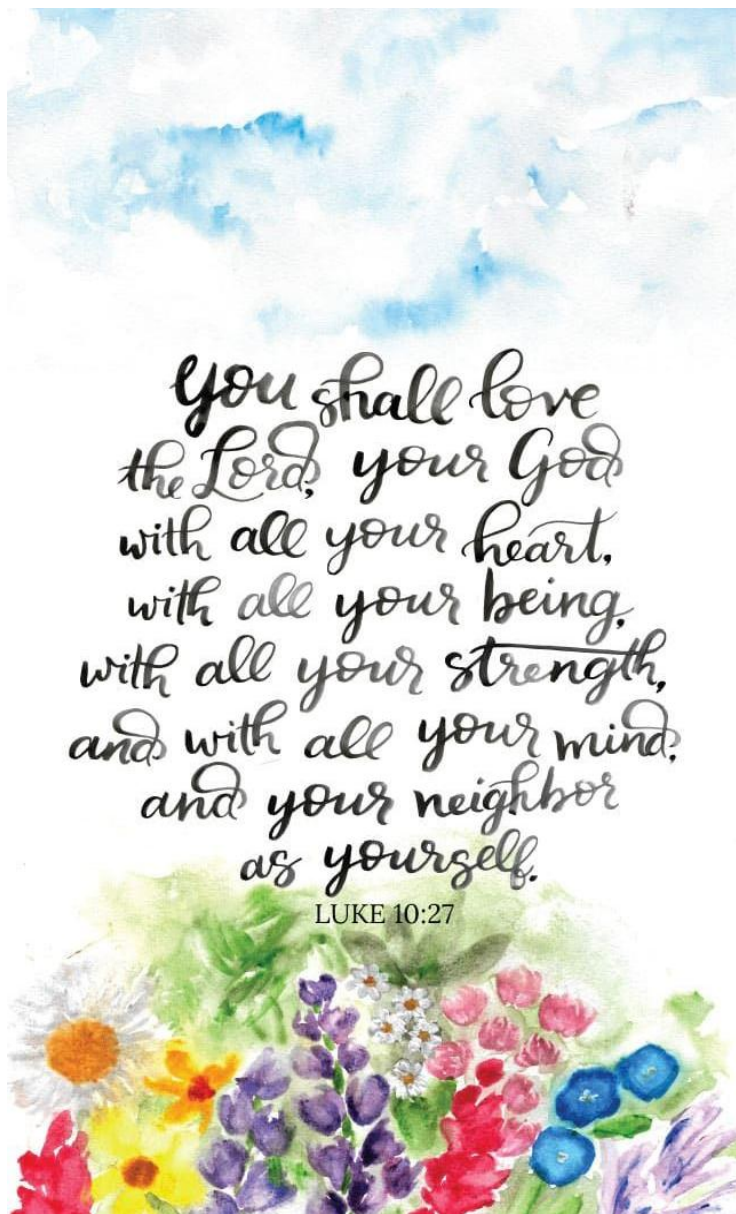 you shall love
the Lord, your God
with all your heart,
with all your being,
with all your strength,
and with all your mind,
and your neighbor
as yourself.
LUKE 10:27